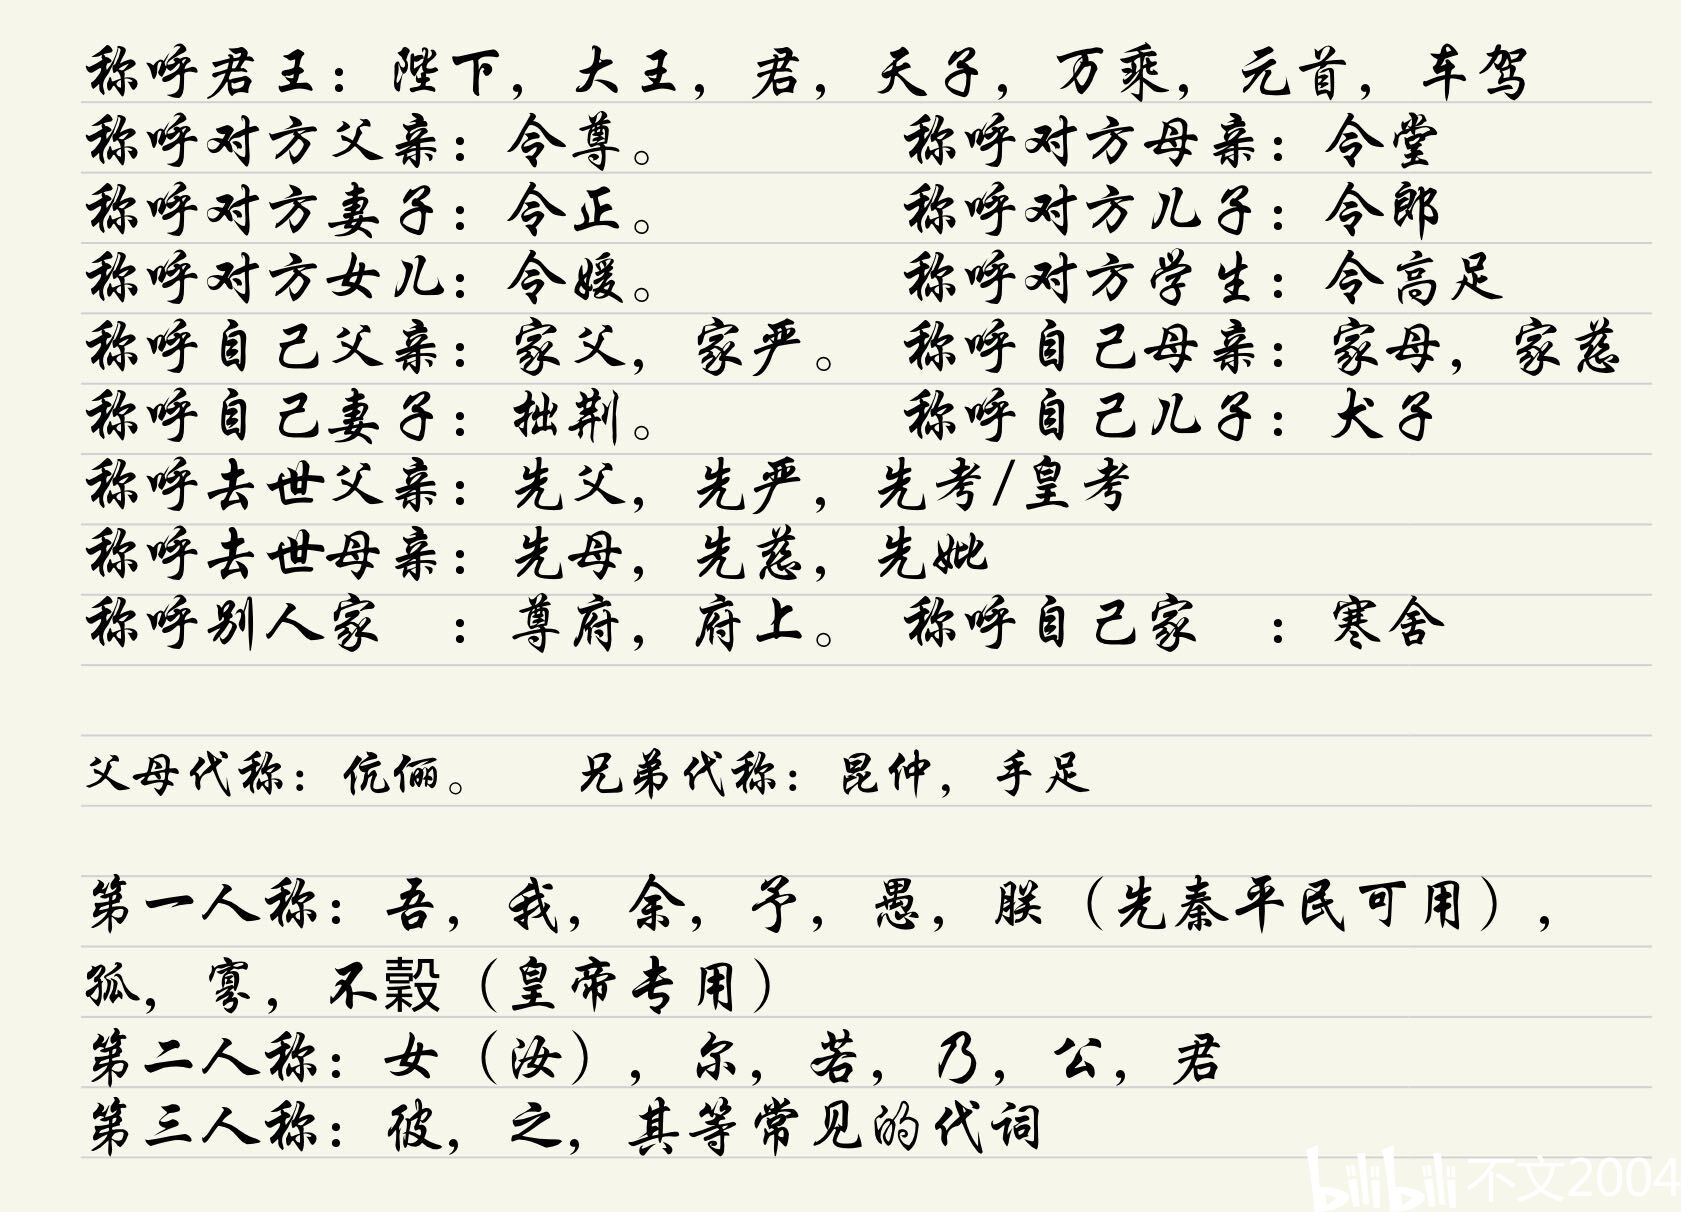 称呼君王：陛下，大王，君，天子，万乘，元首，车驾
称呼对方父亲：令尊。 称呼对方母亲：令堂
称呼对方妻子：令正。 称呼对方儿子：令郎
称呼对方女儿：令嫒。 称呼对方学生：令高足
称呼自己父亲：家父，家严。 称呼自己母亲：家母，家慈
称呼自己妻子：拙荆。 称呼自己儿子：犬子
称呼去世父亲：先父，先严，先考/皇考
称呼去世母亲：先母，先慈，先妣
称呼别人家 ：尊府，府上。 称呼自己家 ：寒舍
父母代称：伉俪。 兄弟代称：昆仲，手足
第一人称：吾，我，余，予，愚，朕（先秦平民可用），
孤，寡，不穀（皇帝专用）
第二人称：女（汝），尔，若，乃，公，君
第三人称：彼，之，其等常见的代词
bilibili 不文2004